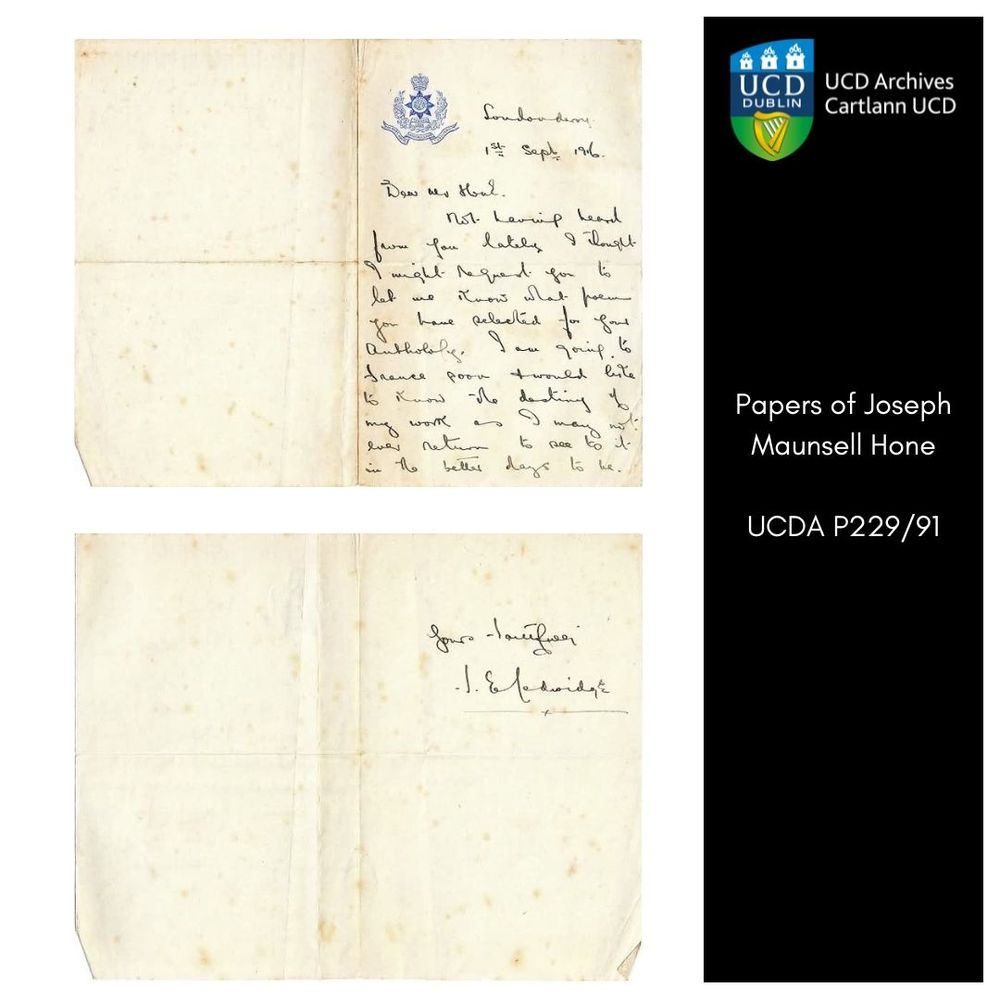 Londonderry.
1st Sept 1916.
Dear Mr Hone.
Not having heard
from you lately I thought
I might request you to
let me know what poem
you have selected for your
Anthology. I am going to
France soon & would like
to know the destiny of
my work as I may not
ever return to see to it
in the better days to be.
Yours faithfully
F. E. Ledwidge
UCD
DUBLIN
UCD Archives
Cartlann UCD
Papers of Joseph
Maunsell Hone
UCDA P229/91